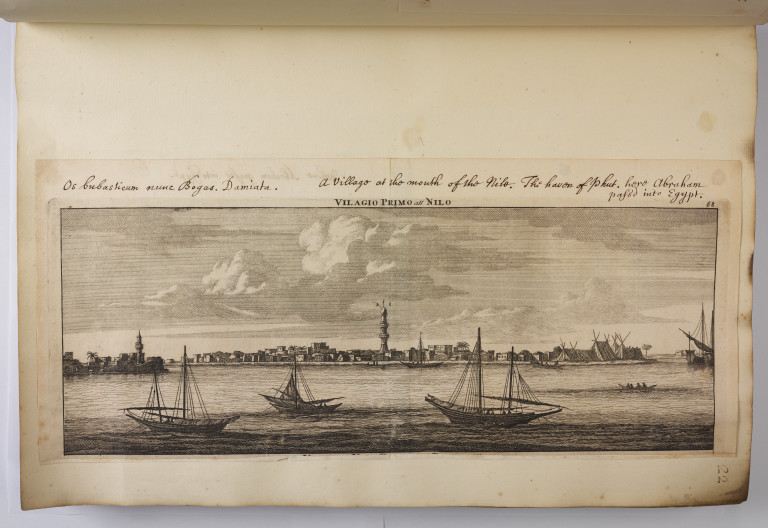 Os bubasticum nunc Bogas. Damiata.
A Village at the mouth of the Nile. The haven of Phut. here Abraham
pass'd into Egypt.
VILAGIO PRIMO all NILO
68